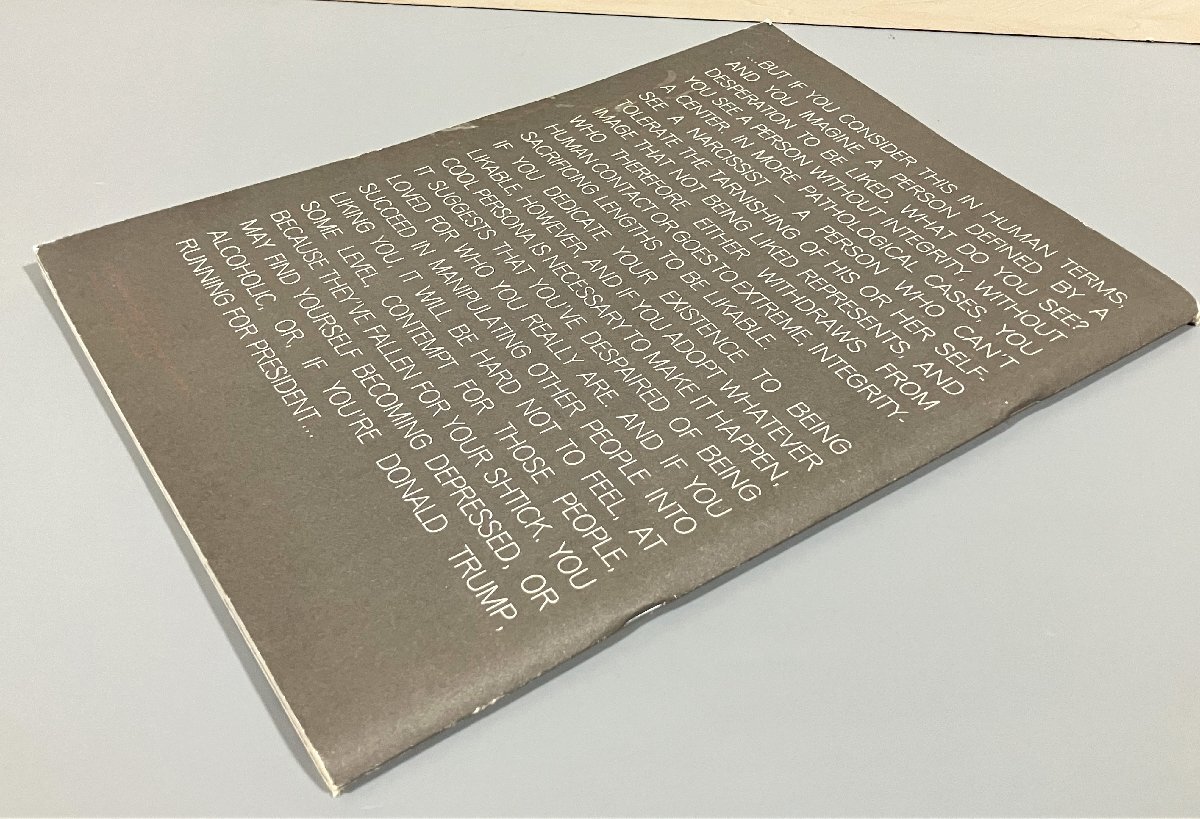 ...BUT IF YOU CONSIDER THIS IN HUMAN TERMS,
AND YOU IMAGINE A PERSON DEFINED BY A
DESPERATION TO BE LIKED, WHAT DO YOU SEE?
YOU SEE A PERSON WITHOUT INTEGRITY, WITHOUT
A CENTER. IN MORE PATHOLOGICAL CASES, YOU
SEE A NARCISSIST – A PERSON WHO CAN'T
TOLERATE THE TARNISHING OF HIS OR HER SELF-
IMAGE THAT NOT BEING LIKED REPRESENTS, AND
WHO THEREFORE EITHER WITHDRAWS FROM
HUMAN CONTACT OR GOES TO EXTREME, INTEGRITY-
SACRIFICING LENGTHS TO BE LIKABLE.
IF YOU DEDICATE YOUR EXISTENCE TO BEING
LIKABLE, HOWEVER, AND IF YOU ADOPT WHATEVER
COOL PERSONA IS NECESSARY TO MAKE IT HAPPEN,
IT SUGGESTS THAT YOU'VE DESPAIRED OF BEING
LOVED FOR WHO YOU REALLY ARE. AND IF YOU
SUCCEED IN MANIPULATING OTHER PEOPLE INTO
LIKING YOU, IT WILL BE HARD NOT TO FEEL, AT
SOME LEVEL, CONTEMPT FOR THOSE PEOPLE,
BECAUSE THEY'VE FALLEN FOR YOUR SHTICK. YOU
MAY FIND YOURSELF BECOMING DEPRESSED, OR
ALCOHOLIC, OR, IF YOU'RE DONALD TRUMP,
RUNNING FOR PRESIDENT...